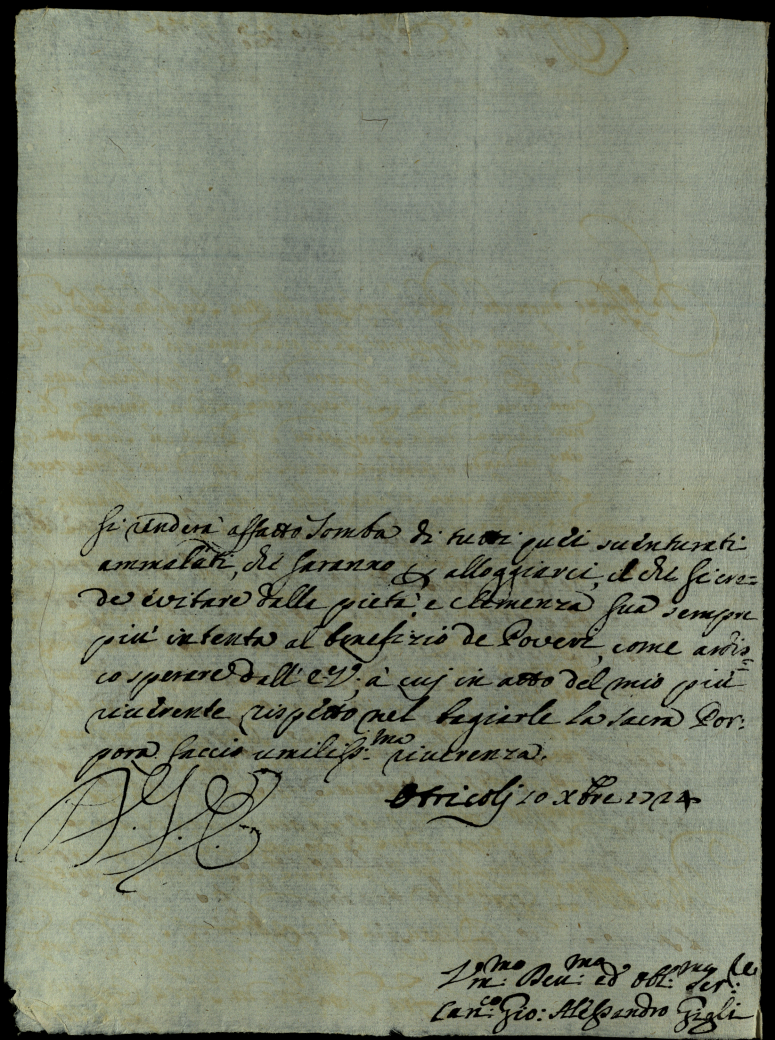 si renderà affatto Tomba di tutti quei suenturati
ammalati, che saranno alloggiarci, il che si cre=
de evitare dalla pietà, e clemenza sua sempre
più intenta al benefizio de Poveri, come ardis=
co sperare dall'E: V:, à cuj in atto del mio più
riuerente rispetto nel bagiarle la sacra Por:
pora faccio umiliss:ma riuerenza.
Otricolj 10 Xbre 1724
Vm:mo Deu:mo ed Obl:mo Ser:re
Can:co Gio: Alessandro Gigli